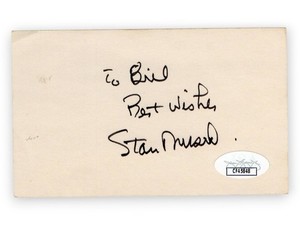 To Bill
Best Wishes
Stan Musial
CF45848